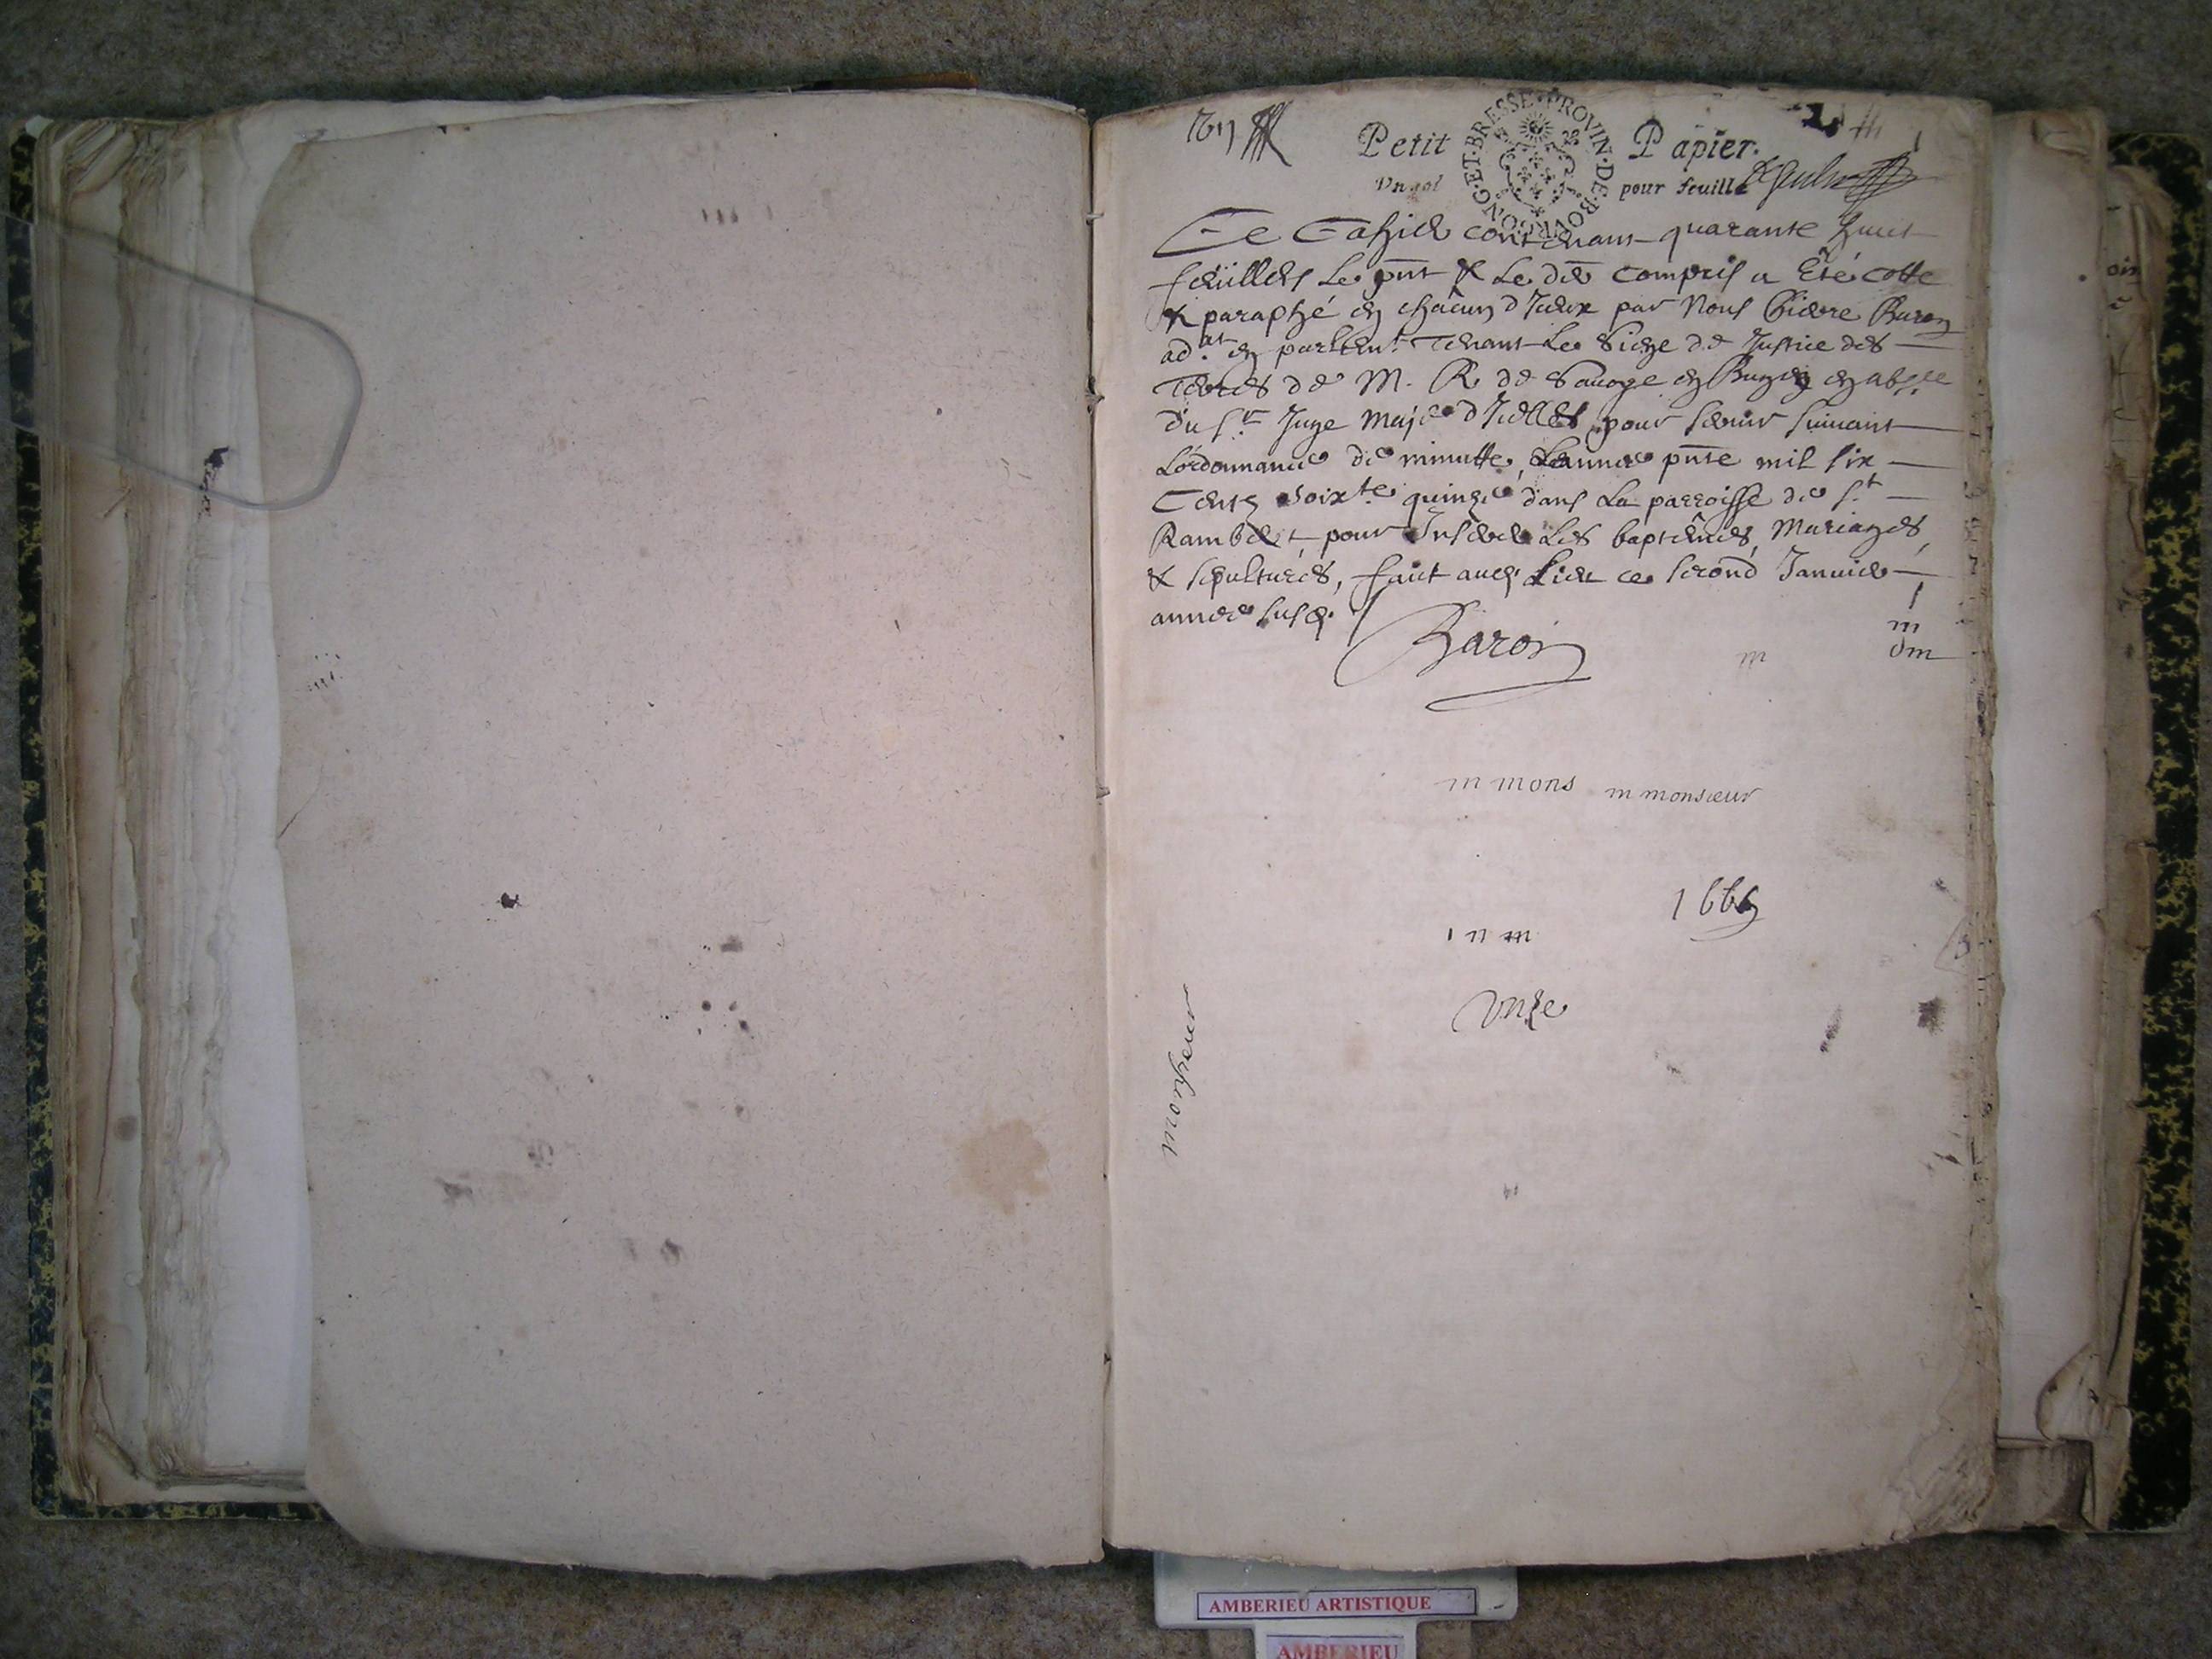 Petit Papier.
Vn sol pour feuille
PROVIN·DE·BOVRGONG·ET·BRESSE
Ce Cahier contenant quarante huict
feüilles le pnt & le der compris a Eté cotté
& paraphé en châcun d'Iceux par Nous Pierre Baron
ad.at en parlemt. Tenant le Siege de Justice des
Terres de M. R. de Sauoye en Bugey en absce
du Sr. Juge Maje d'Icelles pour seruir suiuant
L'ordonnance de minutte, L'année pnte mil six
Cents soixte. quinze dans La parroisse de St.
Rambert pour Inserer Les baptêmes, Mariages,
& sepultures, faict aud. Lieu ce second Januier
année susd.
Baron
m
m
dm
m mons m monsieur
166
i n m
vnze
monsieur
AMBERIEU ARTISTIQUE
AMBERIEU